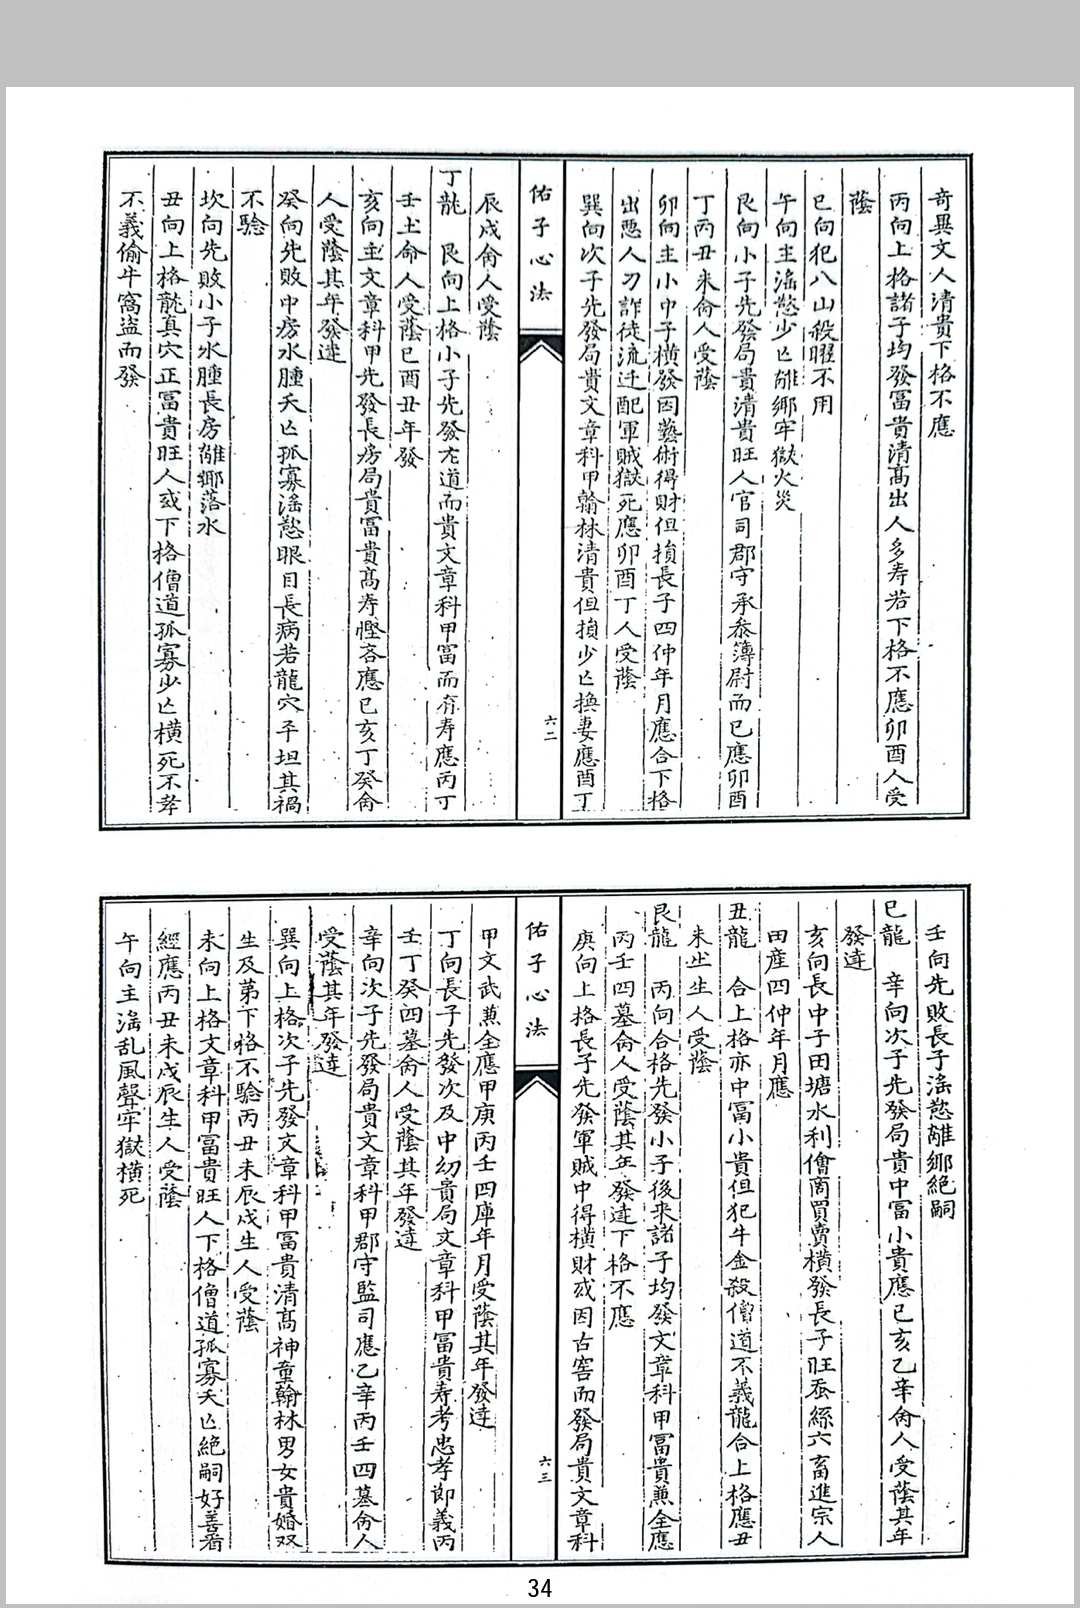 奇異文人清貴下格不應
丙向上格諸子均發冨貴清髙出人多寿若下格不應卯酉人受
蔭
巳向犯八山殺曜不用
午向主滛慾少亡離鄉牢獄火災
艮向小子先發局貴清貴旺人官司郡守承叅簿尉而已應卯酉
丁丙丑未侖人受蔭
卯向主小中子橫發因藝術得財但損長子四仲年月應合下格
出惡人刀詐徒流迁配軍賊獄死應卯酉丁人受蔭
巽向次子先發局貴文章科甲翰林清貴但損少亡換妻應酉丁
佑子心法
六二
辰戍侖人受蔭
丁龍　艮向上格小子先發尤道而貴文章科甲冨而有寿應丙丁
壬土命人受蔭巳酉丑年發
亥向主文章科甲先發長房局貴冨貴髙寿慳吝應巳亥丁癸侖
人受蔭其年發達
癸向先敗中房水腫夭亡孤寡滛慾眼目長病若龍穴平坦其禍
不驗
坎向先敗小子水腫長房離鄉落水
丑向上格龍真穴正冨貴旺人或下格僧道孤寡少亡橫死不孝
不義偷牛窩盗而發
壬向先敗長子滛慾離鄉絕嗣
巳龍　辛向次子先發局貴中冨小貴應巳亥乙辛侖人受蔭其年
發達
亥向長中子田塘水利儈商買賣橫發長子旺蚕絲六畜進宗人
田産四仲年月應
丑龍　合上格亦中冨小貴但犯牛金殺僧道不義龍合上格應丑
未生人受蔭
艮龍　丙向合格先發小子後来諸子均發文章科甲冨貴焦全應
丙壬四墓侖人受蔭其年發達下格不應
庚向上格長子先發軍賊中得橫財或因古窖而發局貴文章科
佑子心法
六三
甲文武焦全應甲庚丙壬四庫年月受蔭其年發達
丁向長子先發次及中幼貴局文章科甲冨貴寿考忠孝節義丙
壬丁癸四墓侖人受蔭其年發達
辛向次子先發局貴文章科甲郡守監司應乙辛丙壬四墓侖人
受蔭其年發達
巽向上格次子先發文章科甲冨貴清髙神童翰林男女貴婚双
生及第下格不驗丙丑未辰戍生人受蔭
未向上格文章科甲冨貴旺人下格僧道孤寡夭亡絕嗣好善看
經應丙丑未戍辰生人受蔭
午向主滛乱風聲牢獄橫死
34